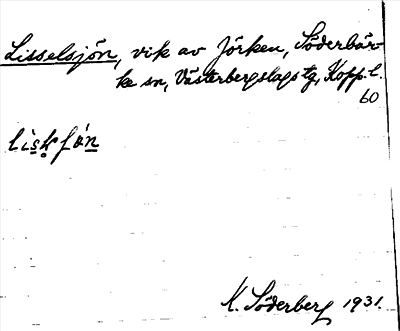 Lisselsjön, vik av Jörken, Söderbär-
ke sn, Västerbergslags tg, Kopp. l.
60
K. Söderberg 1931.